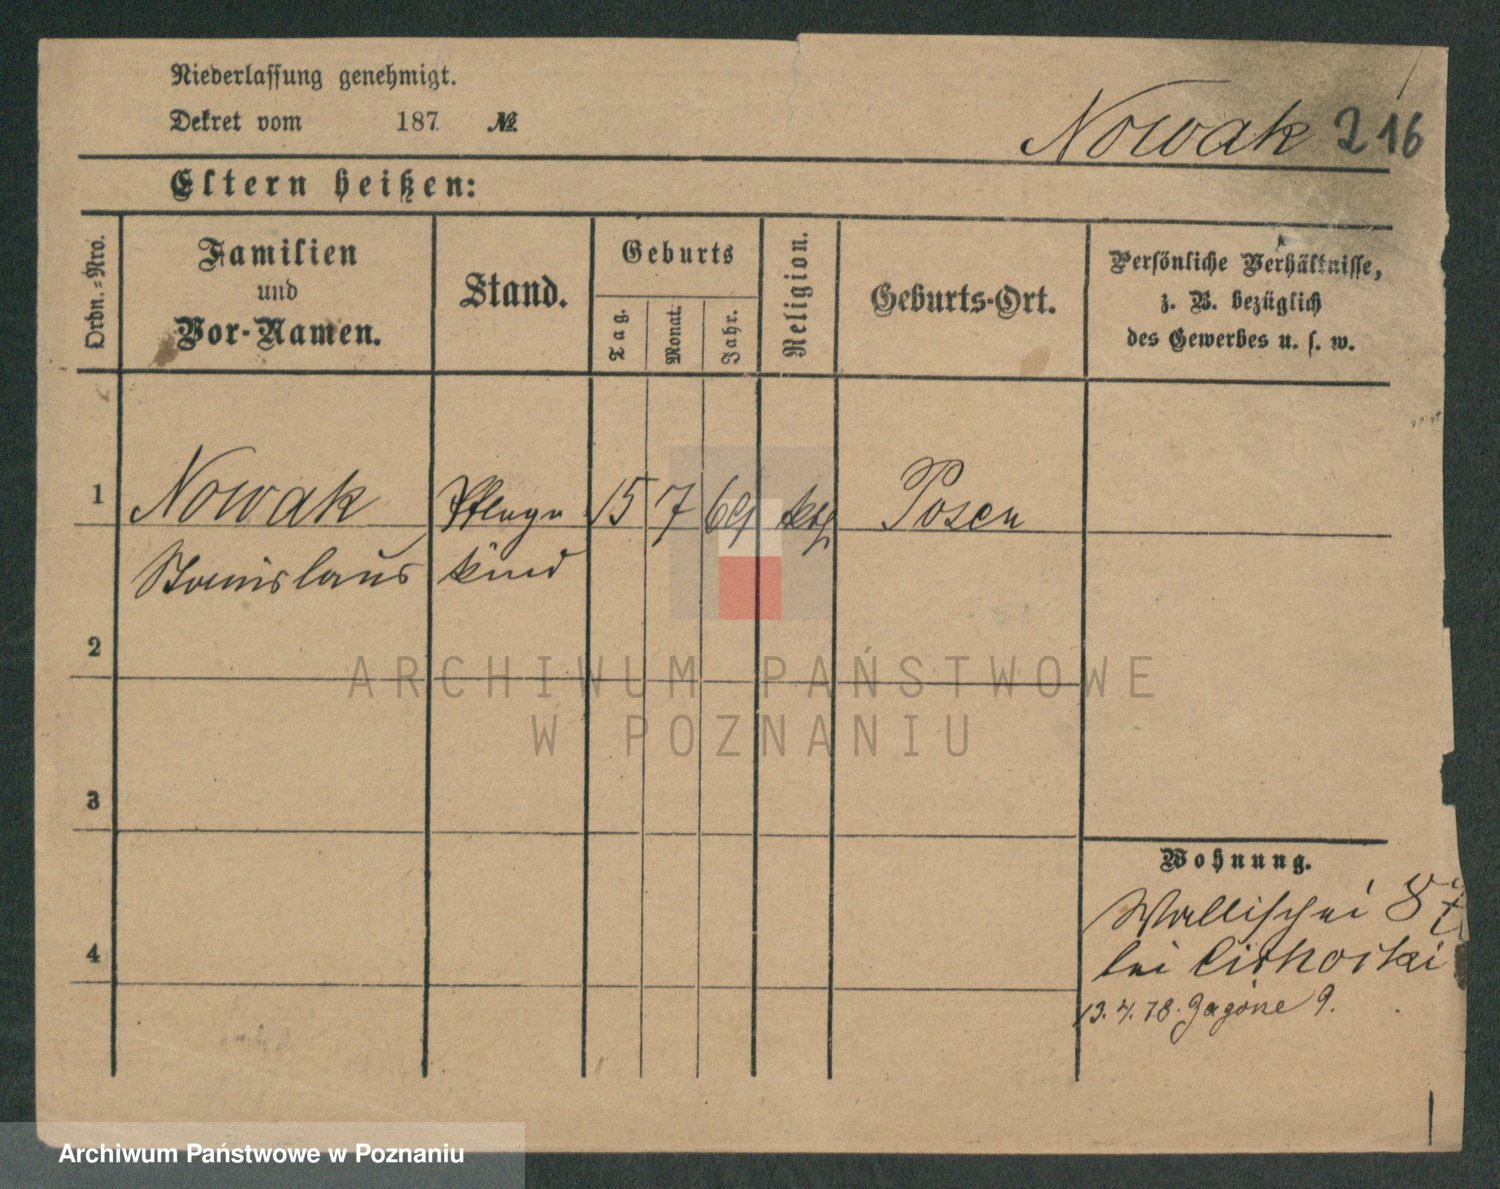 Niederlassung genehmigt.
Dekret vom 187 №
Nowak 216
Eltern heißen:
Ordn.=Nro.
Familien
und
Vor-Namen.
Stand.
Geburts
Tag.
Monat.
Jahr.
Religion.
Geburts-Ort.
Persönliche Verhältnisse,
z. B. bezüglich
des Gewerbes u. s. w.
1 Nowak Pflege 15 7 69 kth Posen
Stanislaus kind
2
3
4
Wohnung.
Wallischei 87
bei Cichocki
13. 4. 78. Zagórze 9.
ARCHIWUM PAŃSTWOWE
W POZNANIU
Archiwum Państwowe w Poznaniu